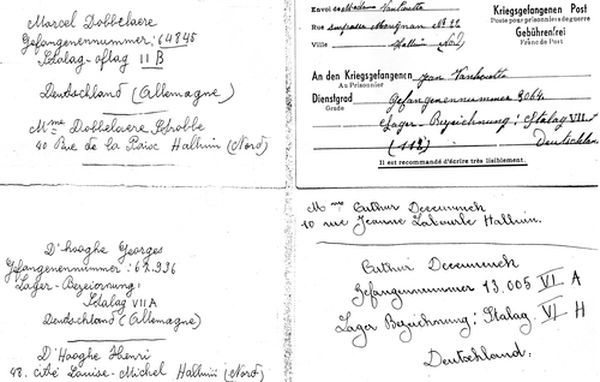 Marcel Dobbelaere
Gefangenennummer: 64845
Stalag-oflag II B
Deutschland (Allemagne)
Mme Dobbelaere Strobbe
40 Rue de la Paix Halluin (Nord)
Envoi de Madame
Rue Marignan No 22
Ville Halluin (Nord)
Kriegsgefangenen Post
Poste pour prisonniers de guerre
Gebührenfrei
Franc de Port
An den Kriegsgefangenen Jean
Au Prisonnier
Dienstgrad Gefangenennummer 3064
Grade
Lager-Bezeichnung: Stalag VII
(112) Deutschlan
Il est recommandé d'écrire très lisiblement.
D'hooghe Georges
Gefangenennummer: 62.936
Lager-Bezeiornung:
Stalag VII A
Deutschland (Allemagne)
D'Hooghe Henri
48. cité Louise-Michel Halluin (Nord)
Mme Arthur
10 rue Jeanne Halluin.
Arthur
Gefangennummer 13.005 VI A
Lager Bezeichnung: Stalag VI H
Deutschland.